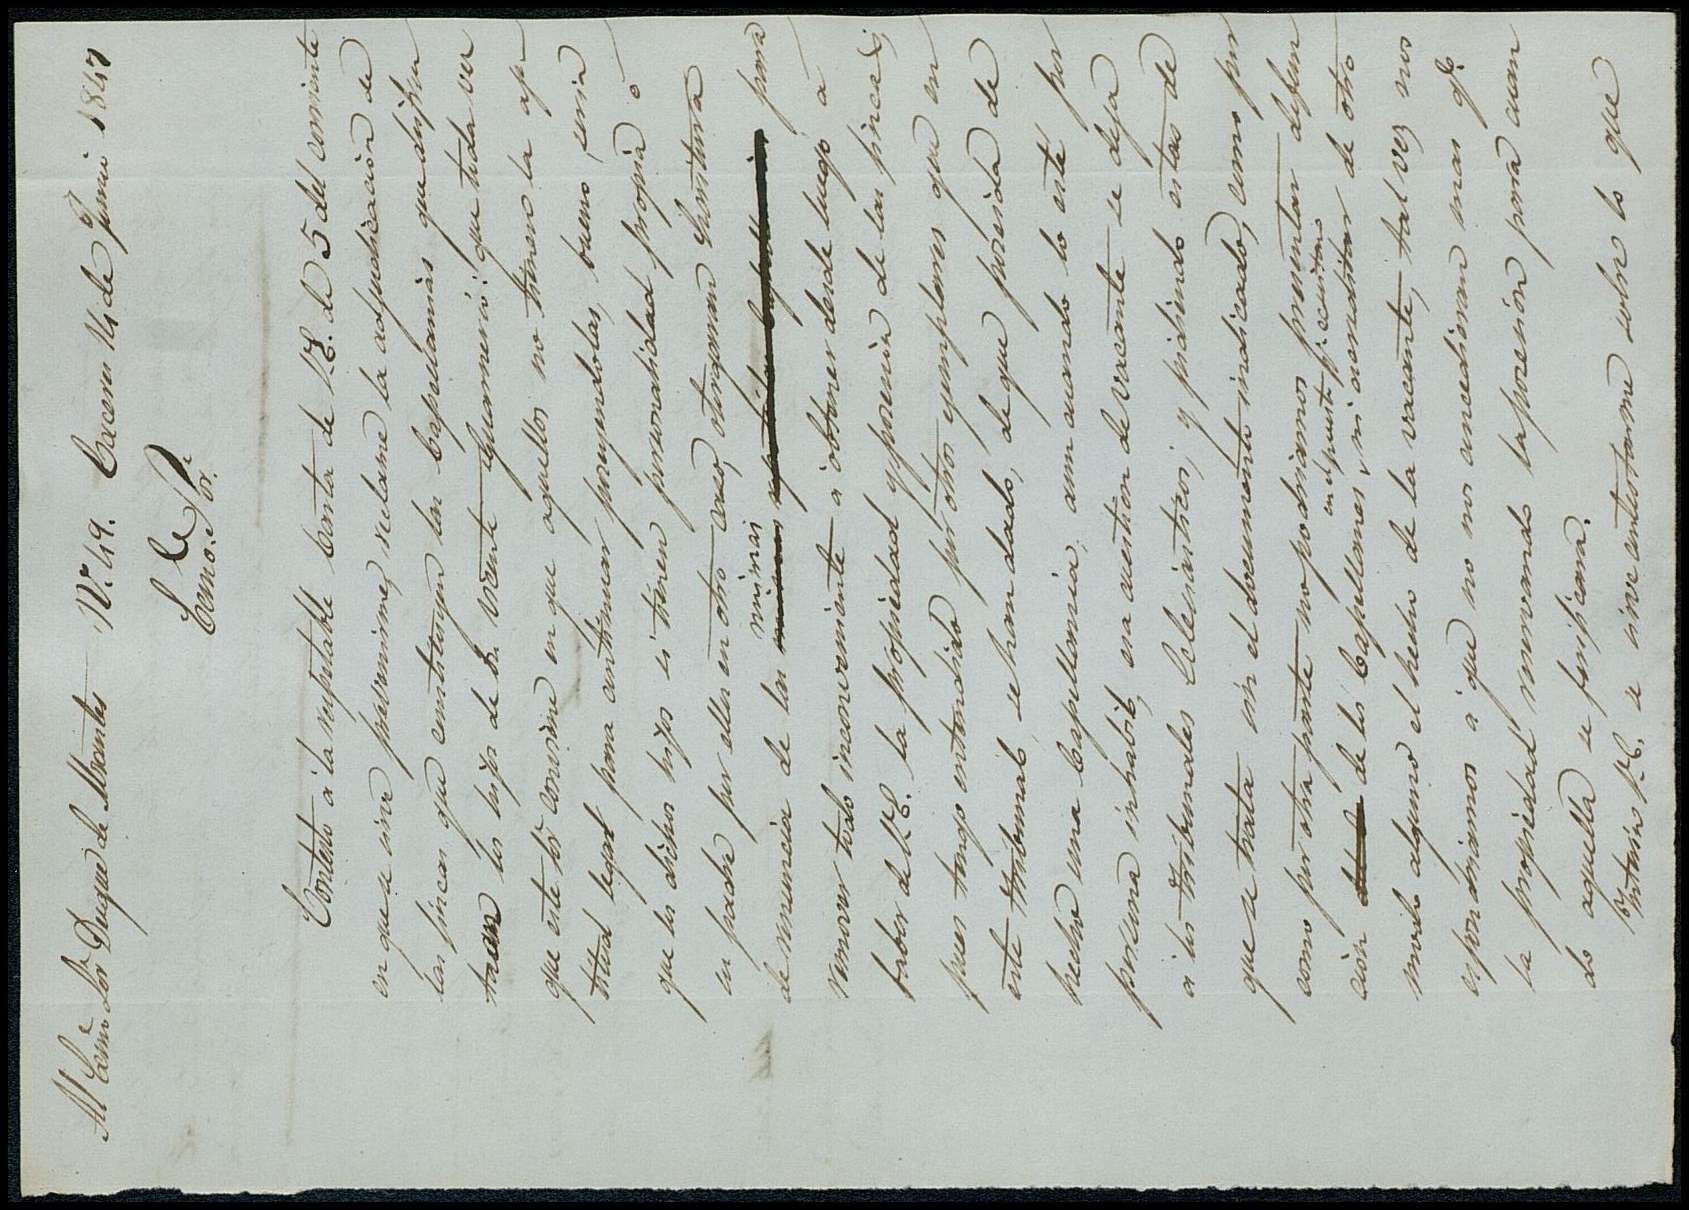 Al Exmo. Sor. Duque de Abrantes Nº 49. Caceres 14 de Junio 1847
Exmo. Sor.
Contesto á la respetable Carta de V.E. de 5 del corriente
en que se sirve prevenirme, reclame la adjudicacion de
las fincas que constituyen las Capellanias que disfru
taron los hijos de Dn. Vicente que toda vez
que este Sor. conviene en que aquellos no tienen la ap
titud legal para continuar poseyendolas, bueno seria
que los dichos hijos si tienen personalidad propia ó
su padre por ellos en otro caso, otorgasen Escritura
de renuncia de las mismas para
remover todo inconveniente á obtener desde luego á
fabor de V.E. la propiedad y posesion de las fincas;
pues tengo entendido por otros ejemplares que en
este Tribunal se han dado, de que poseida de
hecho una Capellania, aun cuando lo esté por
persona inhabil, esa cuestion de vacante se deja
á los Tribunales Eclesiasticos; y pidiendo estas de
que se trata sin el documento indicado, como por
como por otra parte no podriamos presentar defun
cion de los Capellanes, en el puesto pr. escrito ni acreditar de otro
modo alguno el hecho de la vacante, tal vez nos
espondriamos á que no nos concediesen mas qe.
la propiedad reservando la posesion para cuan
do aquella se justificara.
Enterado V.E. se sirve contestarme sobre lo que